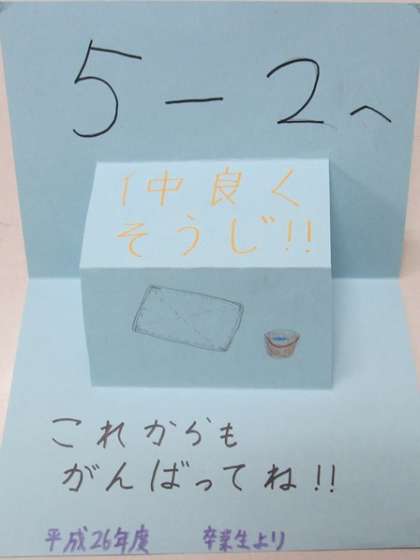 5-2へ
仲良く
そうじ!!
これからも
がんばってね!!
平成26年度 卒業生より